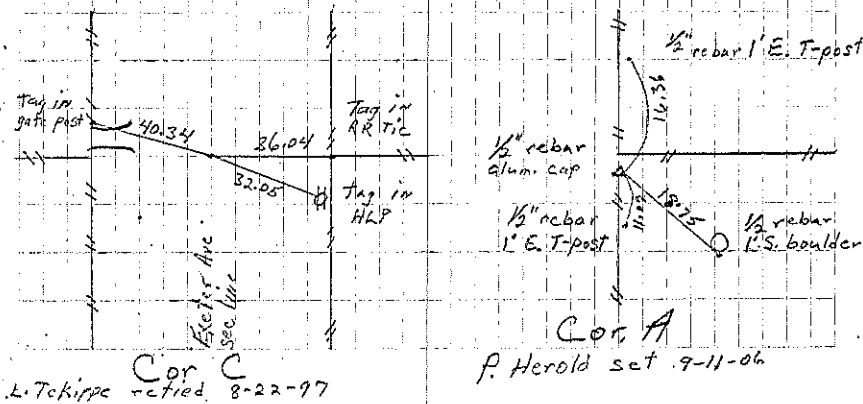 Tag in
gate post
40.34
36.04
32.05
Tag in
RR Tie
Tag in
HLP
Exeter Ave
sec line
Cor C
L. Tekippe retied 8-22-97
1/2" rebar 1' E. T-post
16.36
1/2" rebar
alum. cap
18.75
1/2" rebar
1' E. T-post
1/2 rebar
1' S. boulder
Cor. A
P. Herold set 9-11-06